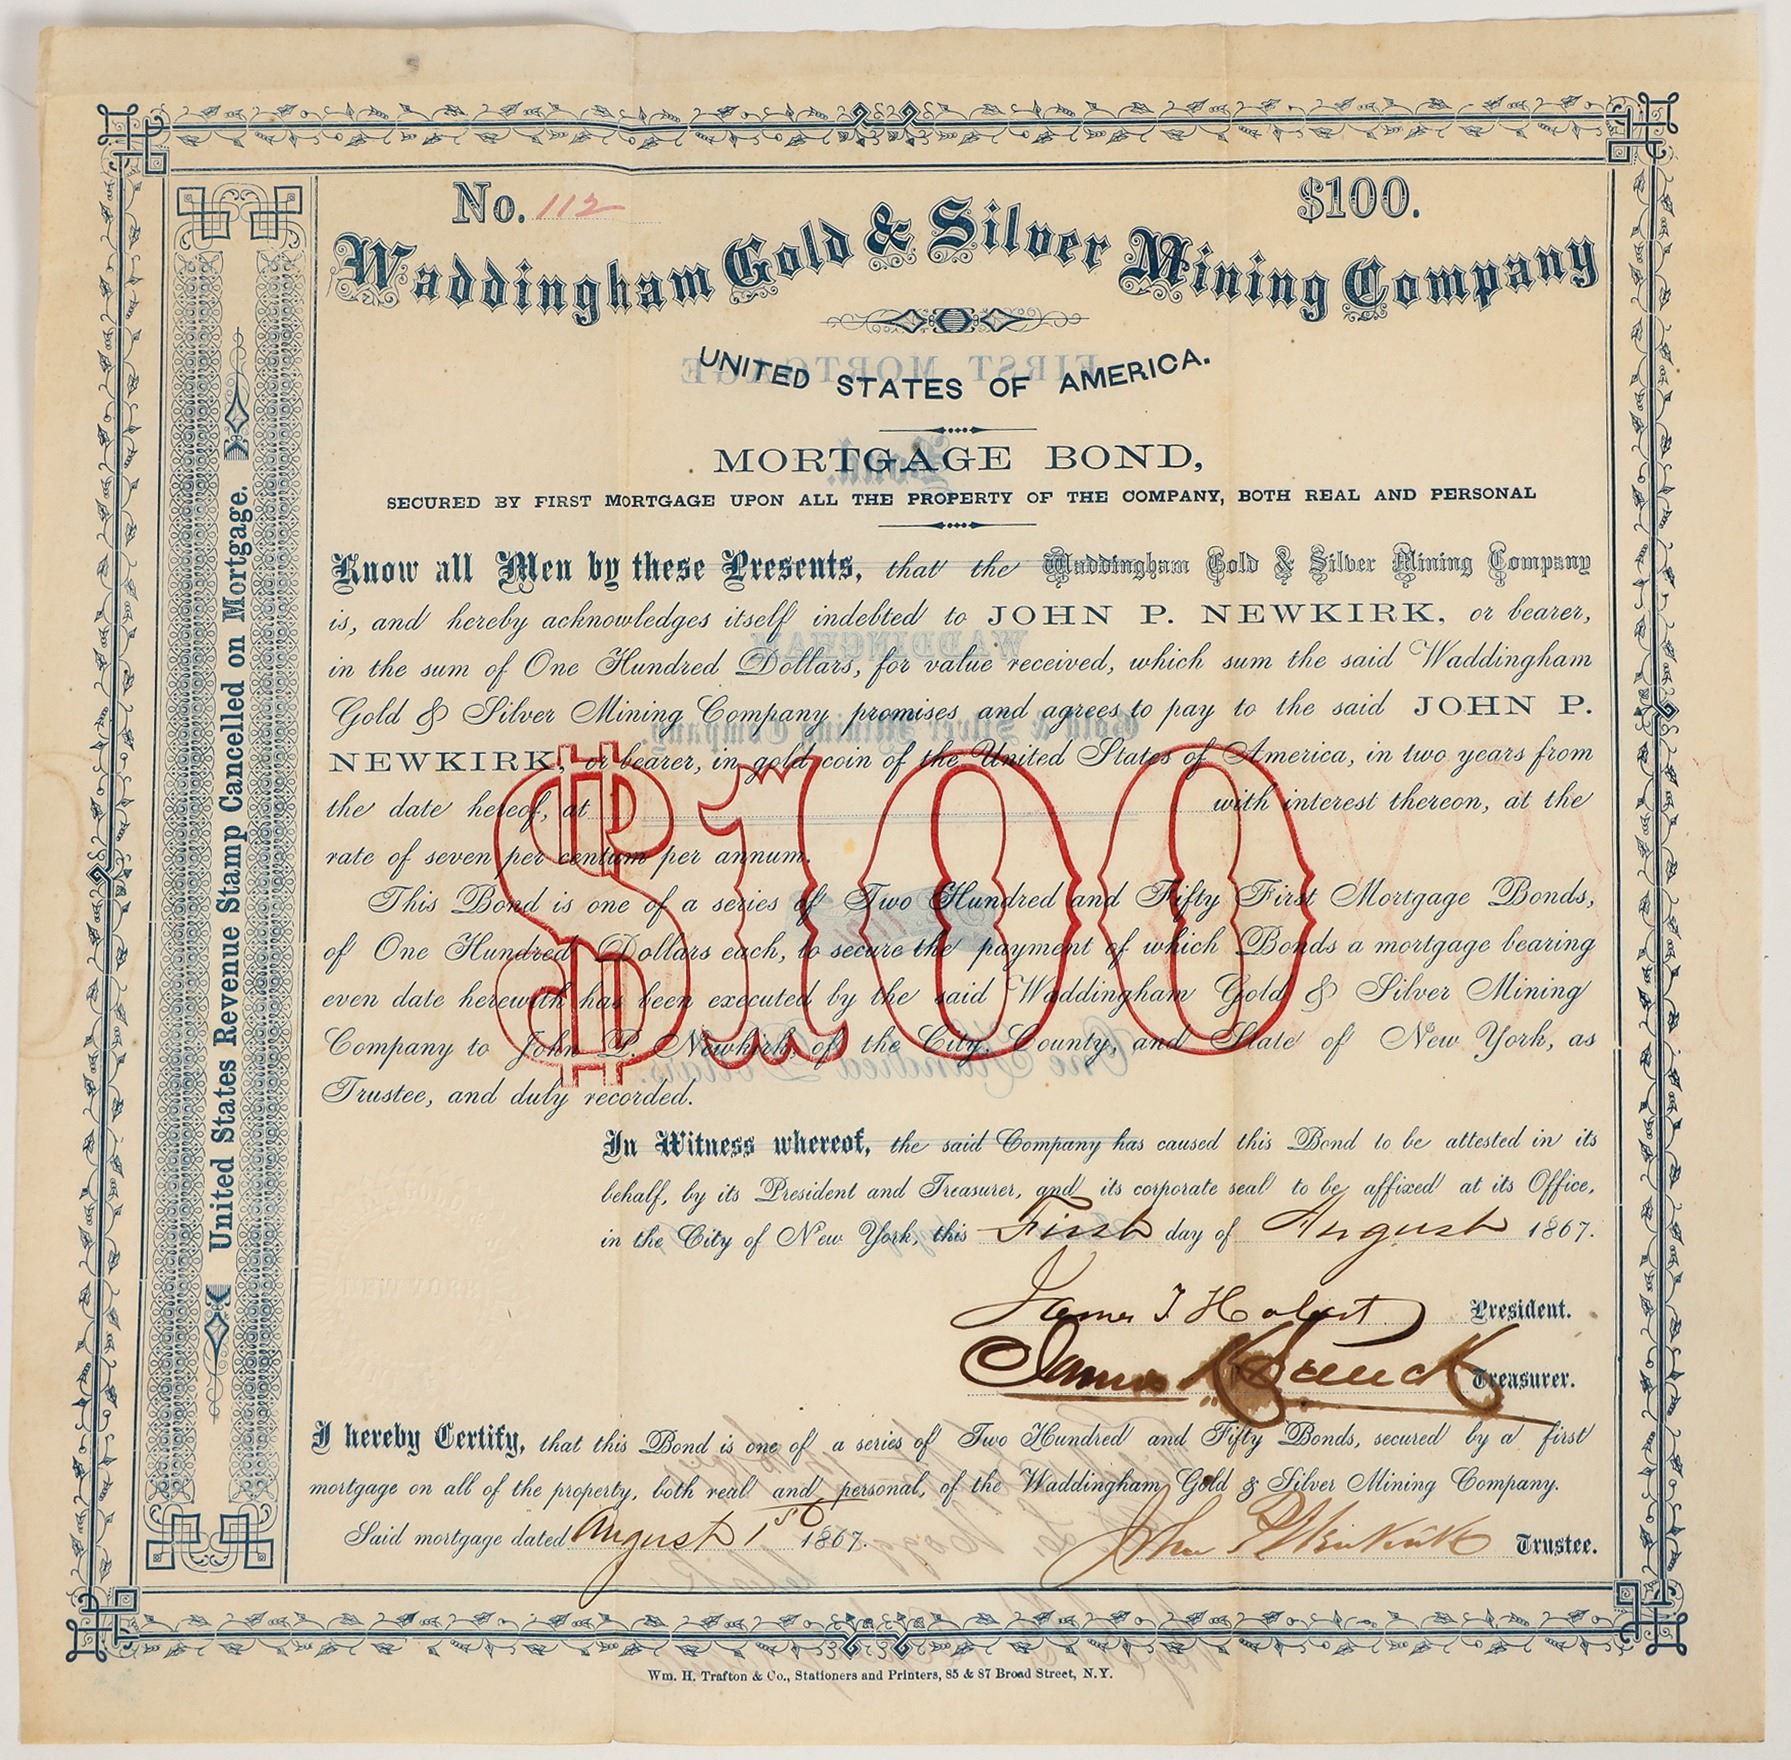 No. 112
$100.
Waddingham Gold & Silver Mining Company
UNITED STATES OF AMERICA.
MORTGAGE BOND,
SECURED BY FIRST MORTGAGE UPON ALL THE PROPERTY OF THE COMPANY, BOTH REAL AND PERSONAL
Know all Men by these Presents, that the Waddingham Gold & Silver Mining Company
is, and hereby acknowledges itself indebted to JOHN P. NEWKIRK, or bearer,
in the sum of One Hundred Dollars, for value received, which sum the said Waddingham
Gold & Silver Mining Company promises and agrees to pay to the said JOHN P.
NEWKIRK, or bearer, in gold coin of the United States of America, in two years from
the date hereof, at with interest thereon, at the
rate of seven per centum per annum.
$100
This Bond is one of a series of Two Hundred and Fifty First Mortgage Bonds,
of One Hundred Dollars each, to secure the payment of which Bonds a mortgage bearing
even date herewith has been executed by the said Waddingham Gold & Silver Mining
Company to John P. Newkirk, of the City, County, and State of New York, as
Trustee, and duly recorded.
In Witness whereof, the said Company has caused this Bond to be attested in its
behalf, by its President and Treasurer, and its corporate seal to be affixed at its Office,
in the City of New York, this First day of August 1867.
James T Hobart President.
James K Treasurer.
I hereby Certify, that this Bond is one of a series of Two Hundred and Fifty Bonds, secured by a first
mortgage on all of the property, both real and personal, of the Waddingham Gold & Silver Mining Company.
Said mortgage dated August 1st 1867.
John P Newkirk Trustee.
United States Revenue Stamp Cancelled on Mortgage.
Wm. H. Trafton & Co., Stationers and Printers, 85 & 87 Broad Street, N.Y.
FIRST MORTGAGE
Bond.
WADDINGHAM
Gold & Silver Mining Company.
One Hundred Dollars.